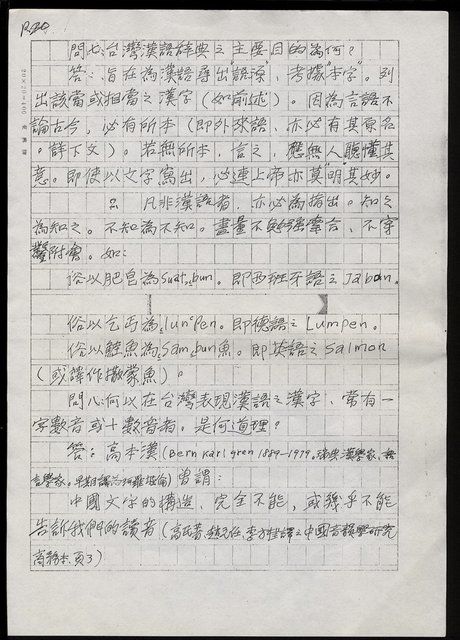 問七、台灣漢語辞典之主要目的為何?
答:旨在為漢語尋出"語源",考據"本字"。列
出該當或相當之漢字(如前述)。因為言語不
論古今,必有所本(即外來語,亦必有其原名
。詳下文)。若無所本,言之,應無人聽懂其
意。即使以文字寫出,必連上帝亦莫明其妙。
凡非漢語者,亦必為指出。知之
為知之。不知為不知。盡量不勉強牽合、不穿
鑿附會。如:
俗以肥皂為 Suat bun。即西班牙語之 Jabon.
俗以乞丐為 lun Pen。即德語之 Lumpen。
俗以鮭魚為 Sam bun 魚。即英語之 Salmon
(或譯作撒蒙魚)。
問八、何以在台灣表現漢語之漢字、常有一
字數音或十數音者。是何道理?
答:高本漢(Bern Karlgren 1889-1979。瑞典漢學家、
言學家。)曾謂:
中國文字的構造、完全不能,或幾乎不能
告訴我們的讀者(高氏著、趙元任、李方桂譯之中國音韻學研究
商務本、頁3)
20×20=400